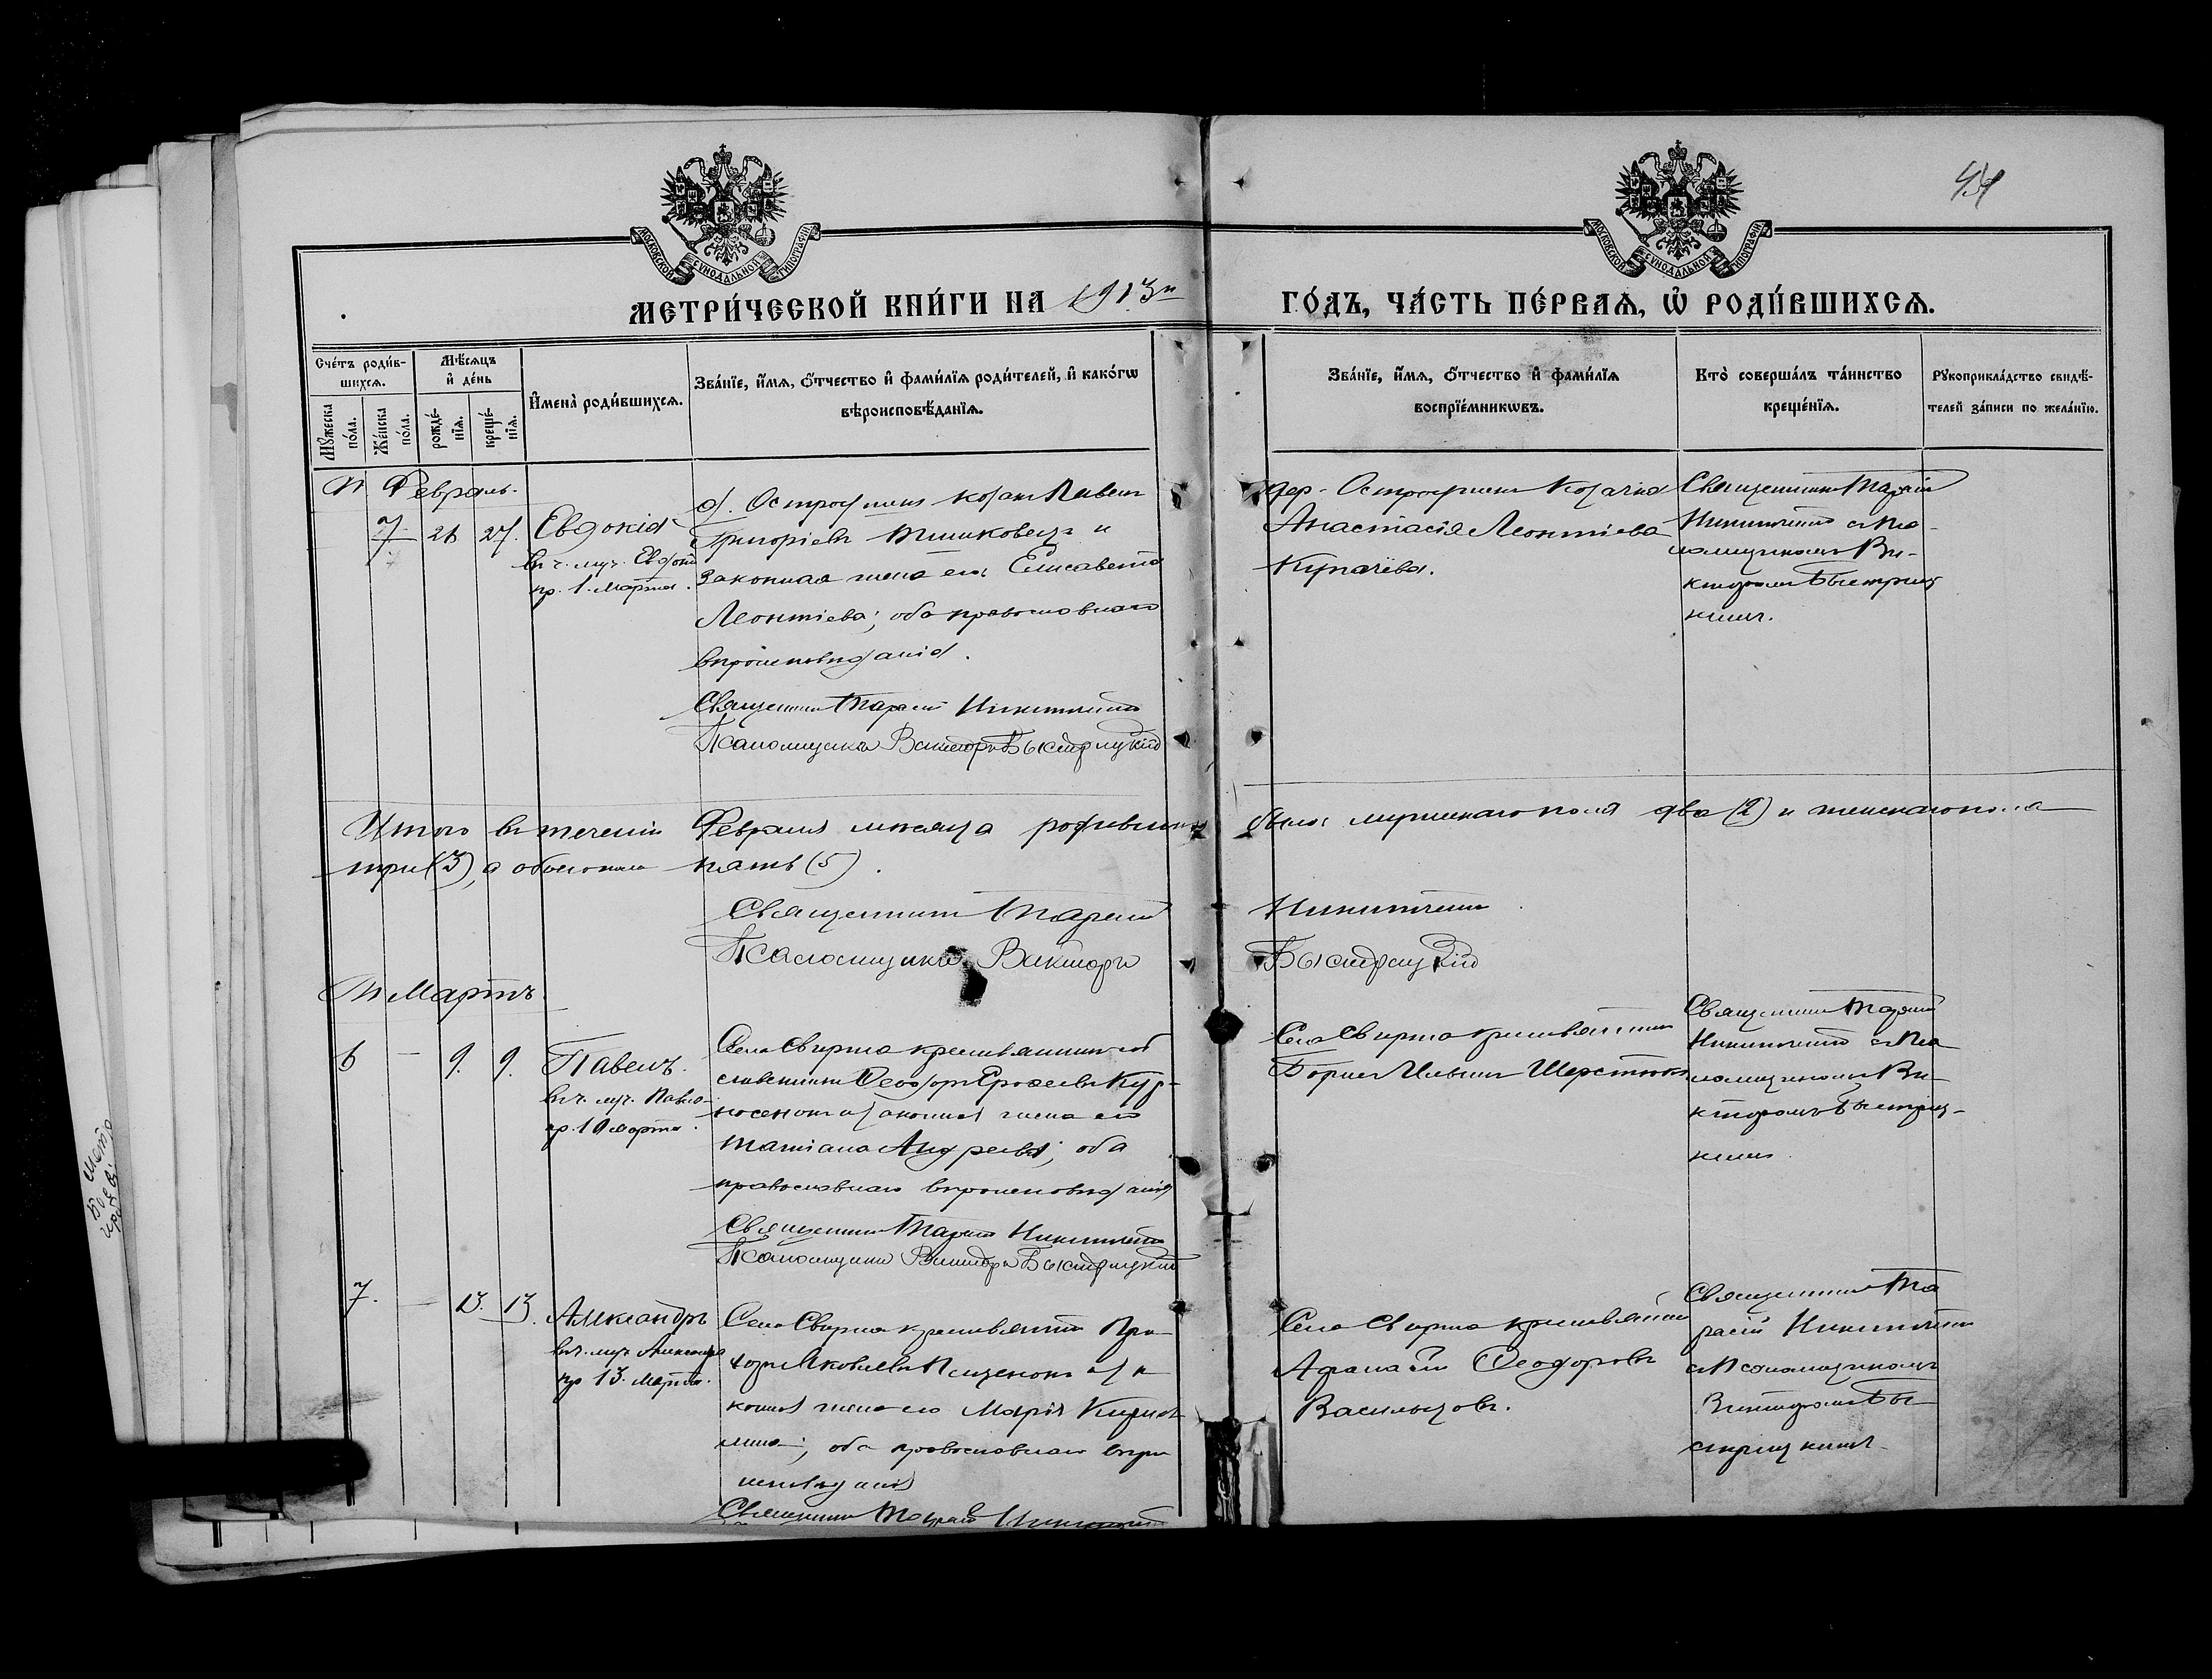 МОСКОВСКОЙ СѴНОДАЛЬНОЙ ТИПОГРАФІИ
МОСКОВСКОЙ СѴНОДАЛЬНОЙ ТИПОГРАФІИ
МЕТРИ́ЧЕСКОЙ КНИ́ГИ НА 1913й
ГО́ДЪ, ЧА́СТЬ ПЕ́РВАѦ, Ѡ҆ РОДИ́ВШИХСѦ.
Сче́тъ роди́в-
шихсѧ.
Мꙋ́жеска
по́ла.
Же́нска
по́ла.
Мѣ́сѧцъ
и҆ де́нь
рожде́-
нїѧ.
креще́-
нїѧ.
И҆мена̀ роди́вшихсѧ.
Зва́нїе, и҆́мѧ, ѻ҆́тчество и҆ фами́лїѧ роди́телей, и҆ како́гѡ
вѣроисповѣ́данїѧ.
Зва́нїе, и҆́мѧ, ѻ҆́тчество и҆ фами́лїѧ
воспрїе́мникѡвъ.
Кто̀ соверша́лъ та́инство
креще́нїѧ.
Рꙋкоприкла́дство свидѣ́-
телей за́писи по жела́нїю.
Февраль.
7. 26 27. Евдокія
вч. муч. Евдок
пр. 1. Марта.
козак Павел
Григоріевъ Тишковецъ и
законная жена его Елисавета
Леонтіева; оба православнаго
вѣроисповѣданія.
Священникъ Тарасій Никитченко
Псаломщикъ Викторъ Быстрицкій
дер. Козачка
Анастасія Леонтіева
Священникъ Тарасій
Никитченко съ Пса-
ломщикомъ Ви-
кторомъ Быстриц
кимъ.
Итого въ теченіи Февраля мѣсяца родившихся
было: мужескаго пола два (2) и женскаго пола
три (3), а обоего пола пять (5).
Священникъ Тарасій Никитченко
Псаломщикъ Викторъ Быстрицкій
Мартъ.
6 — 9. 9. Павелъ.
вч. муч. Павла
пр. 10 марта.
Села Свирка крестьянинъ соб
ственникъ Феодоръ
законная жена его
Татіана Андреева; оба
православнаго вѣроисповѣданія
Священникъ Тарасій Никитченко
Псаломщикъ Викторъ Быстрицкій
Села Свирка крестьянинъ
Борисъ Ильинъ Шерстюк
Священникъ Тарасій
Никитченко съ Пса
ломщикомъ Ви-
кторомъ Быстриц-
кимъ
7. — 13. 13. Александръ
вч. муч. Александра
пр 13. Марта.
Села Свирка крестьянинъ Про
хоръ Яковлевъ и за
конная жена его Марія
оба православнаго вѣро
исповѣданія
Священникъ Тарасій Никитченко
Села Свирка крестьянинъ
Афанасій Феодоровъ
Васильцовъ.
Священникъ Та
расій Никитченко
съ Псаломщикомъ
Викторомъ Бы
стрицкимъ